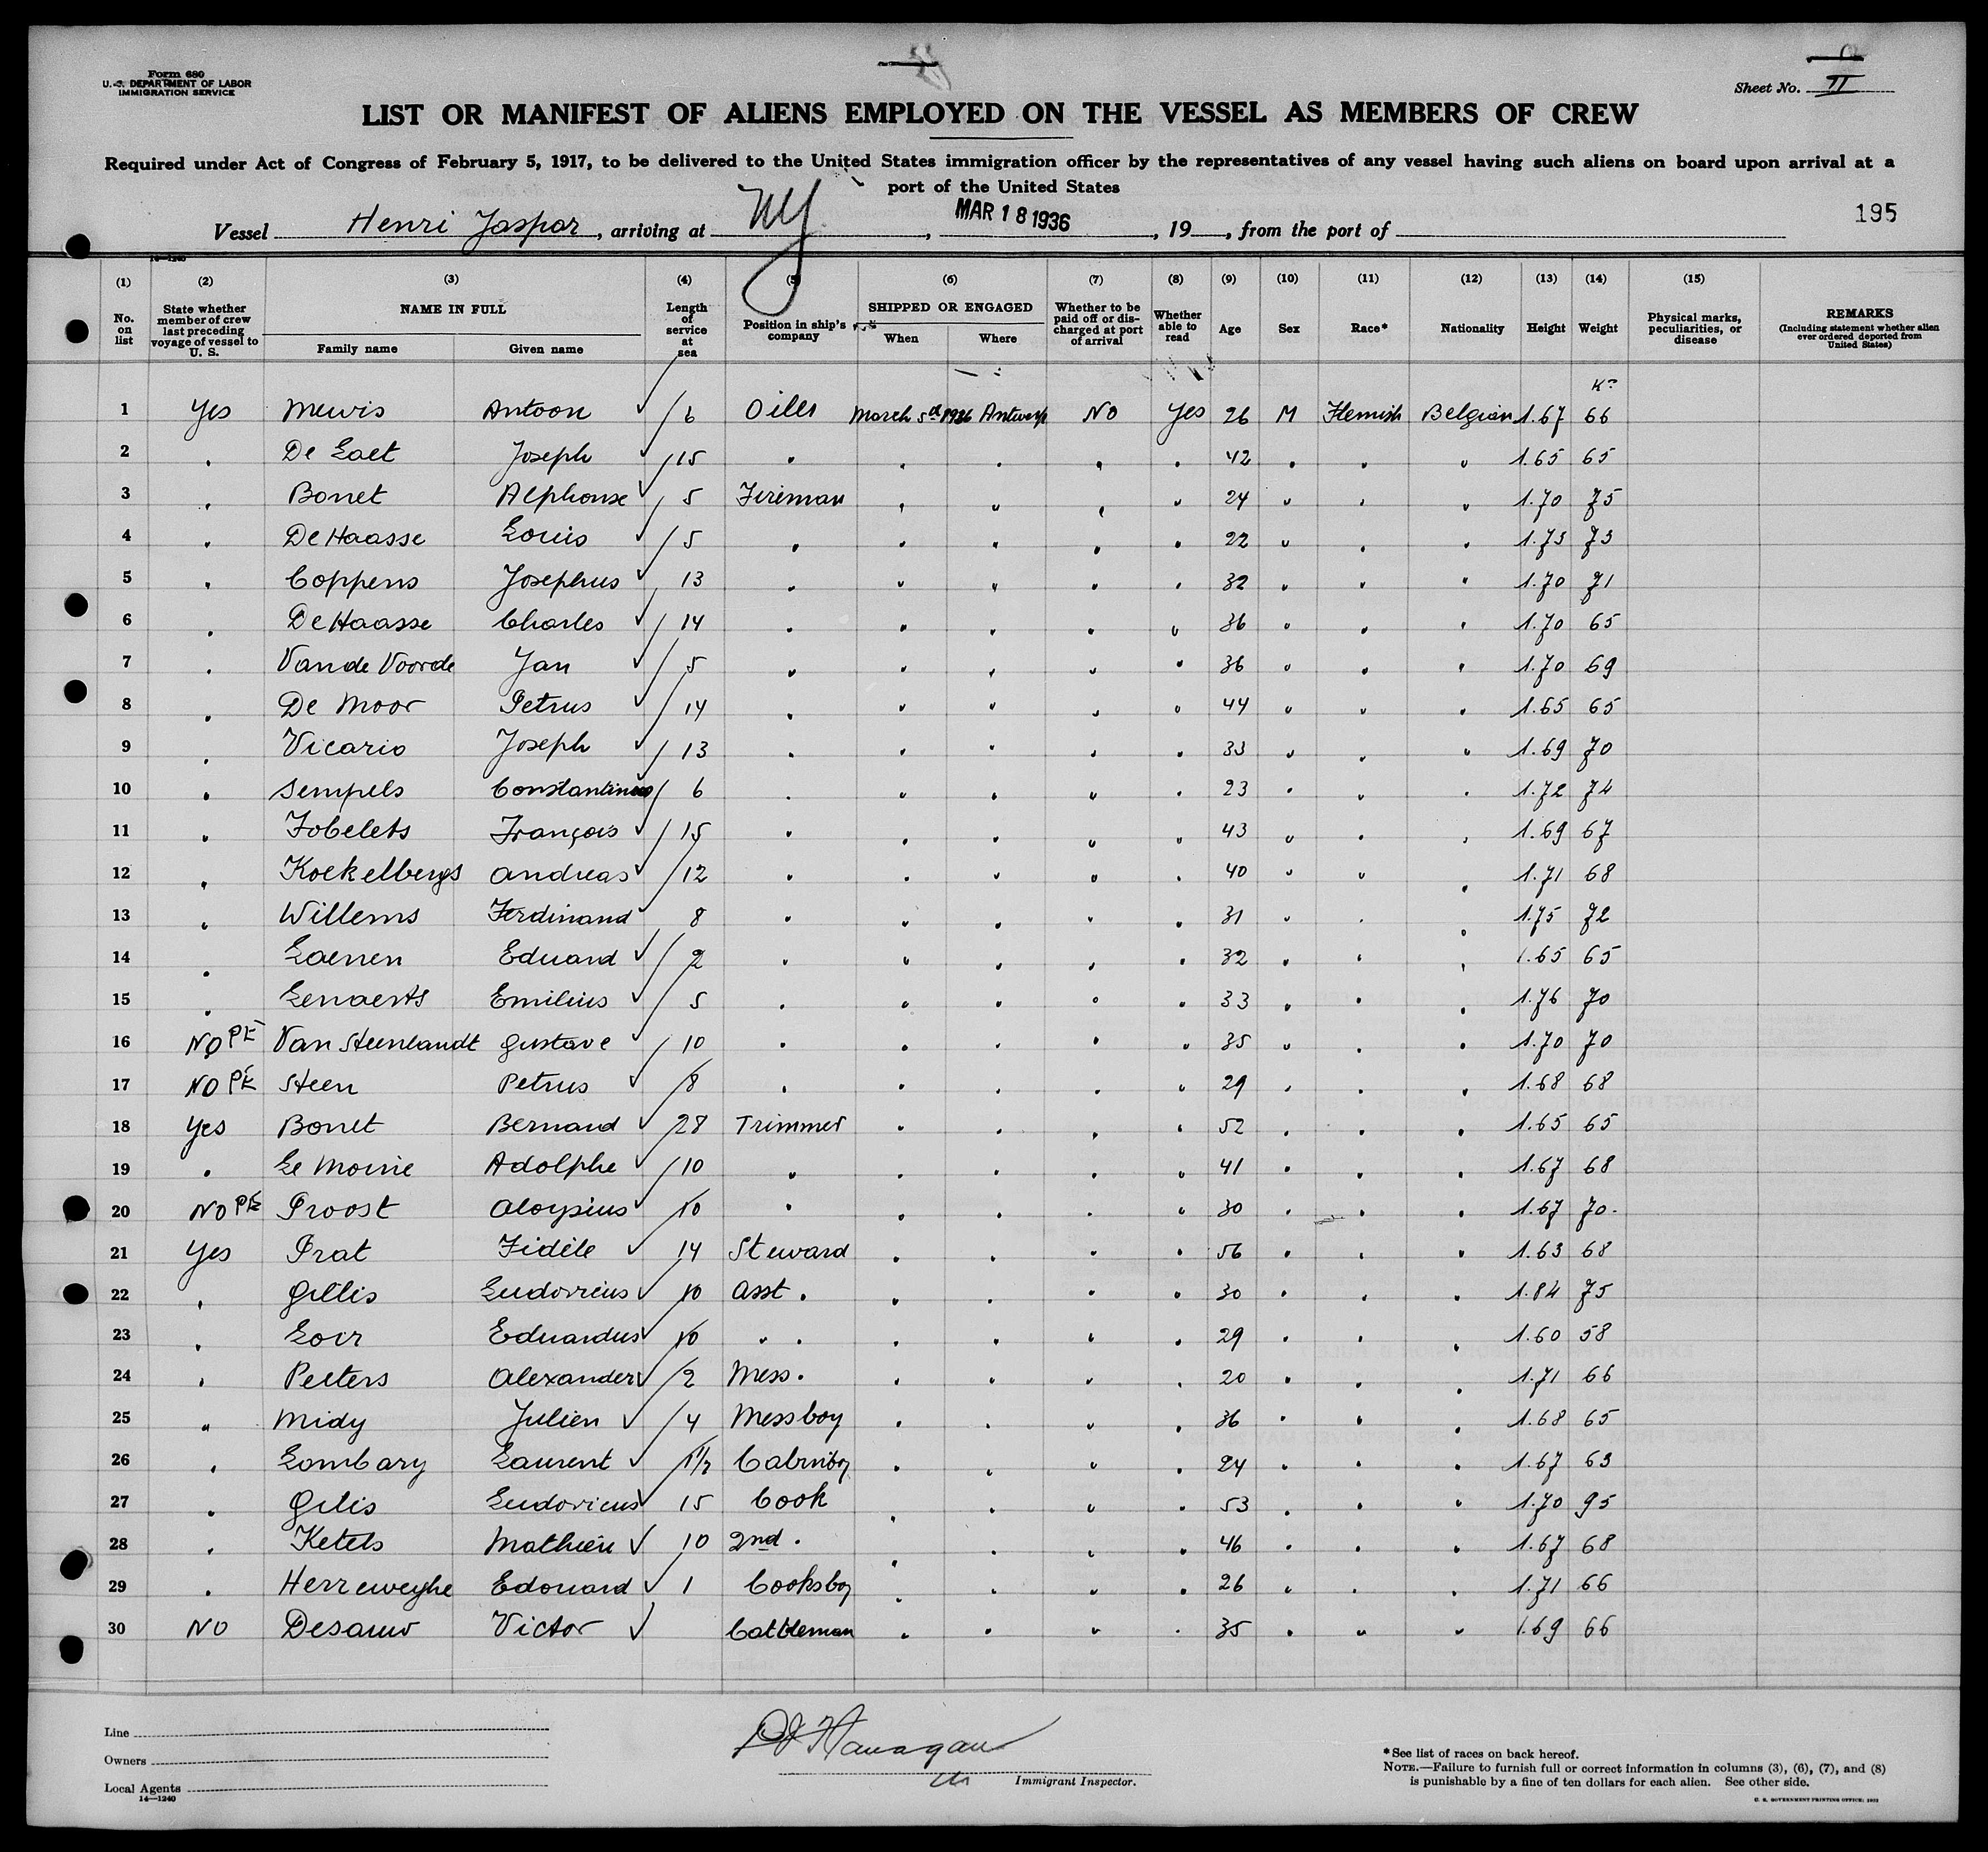 Form 680
U. S. DEPARTMENT OF LABOR
IMMIGRATION SERVICE
Sheet No. II
LIST OR MANIFEST OF ALIENS EMPLOYED ON THE VESSEL AS MEMBERS OF CREW
Required under Act of Congress of February 5, 1917, to be delivered to the United States immigration officer by the representatives of any vessel having such aliens on board upon arrival at a
port of the United States
195
Vessel Henri Jaspar, arriving at NY, MAR 18 1936, 19, from the port of
(1) (2) (3) (4) (5) (6) (7) (8) (9) (10) (11) (12) (13) (14) (15)
No. on list
State whether member of crew last preceding voyage of vessel to U. S.
NAME IN FULL
Family name Given name
Length of service at sea
Position in ship's company
SHIPPED OR ENGAGED
When Where
Whether to be paid off or discharged at port of arrival
Whether able to read
Age Sex Race* Nationality Height Weight
Physical marks, peculiarities, or disease
REMARKS
(Including statement whether alien ever ordered deported from United States)
1 Yes Mewis Antoon 6 Oiler March 5th 1936 Antwerp No Yes 26 M Flemish Belgian 1.67 66
2 " De Laet Joseph 15 " " " " " 42 " " " 1.65 65
3 " Bonet Alphonse 5 Fireman " " " " 24 " " " 1.70 75
4 " De Haasse Louis 5 " " " " " 22 " " " 1.73 73
5 " Coppens Josephus 13 " " " " " 32 " " " 1.70 71
6 " De Haasse Charles 14 " " " " " 36 " " " 1.70 65
7 " Van de Voorde Jan 5 " " " " " 36 " " " 1.70 69
8 " De Moor Petrus 14 " " " " " 44 " " " 1.65 65
9 " Vicario Joseph 13 " " " " " 33 " " " 1.69 70
10 " Sempels Constantinus 6 " " " " " 23 " " " 1.72 74
11 " Fobelets François 15 " " " " " 43 " " " 1.69 67
12 " Koekelbergs Andreas 12 " " " " " 40 " " " 1.71 68
13 " Willems Ferdinand 8 " " " " " 31 " " " 1.75 72
14 " Laenen Eduard 2 " " " " " 32 " " " 1.65 65
15 " Lenaerts Emilius 5 " " " " " 33 " " " 1.76 70
16 No PE Van Steenlandt Gustave 10 " " " " " 35 " " " 1.70 70
17 No PE Steen Petrus 8 " " " " " 29 " " " 1.68 68
18 Yes Bonet Bernard 28 Trimmer " " " " 52 " " " 1.65 65
19 " Le Moine Adolphe 10 " " " " " 41 " " " 1.67 68
20 No PE Proost Aloysius 10 " " " " " 30 " " " 1.67 70
21 Yes Prat Fidèle 14 Steward " " " " 56 " " " 1.63 68
22 " Gillis Ludovicus 10 Asst. " " " " 30 " " " 1.84 75
23 " Loir Eduardus 10 " " " " " " 29 " " " 1.60 58
24 " Peeters Alexander 2 Mess. " " " " 20 " " " 1.71 66
25 " Midy Julien 4 Messboy " " " " 36 " " " 1.68 65
26 " Lombary Laurent 1/2 Cabinboy " " " " 24 " " " 1.67 63
27 " Gilis Ludovicus 15 Cook " " " " 53 " " " 1.70 95
28 " Ketels Mathieu 10 2nd " " " " " 46 " " " 1.67 68
29 " Herreweyhe Edouard 1 Cooksboy " " " " 26 " " " 1.71 66
30 No Desauw Victor Cattleman " " " " 35 " " " 1.69 66
Line
Owners
Local Agents
14—1240
Immigrant Inspector.
*See list of races on back hereof.
NOTE.—Failure to furnish full or correct information in columns (3), (6), (7), and (8)
is punishable by a fine of ten dollars for each alien. See other side.